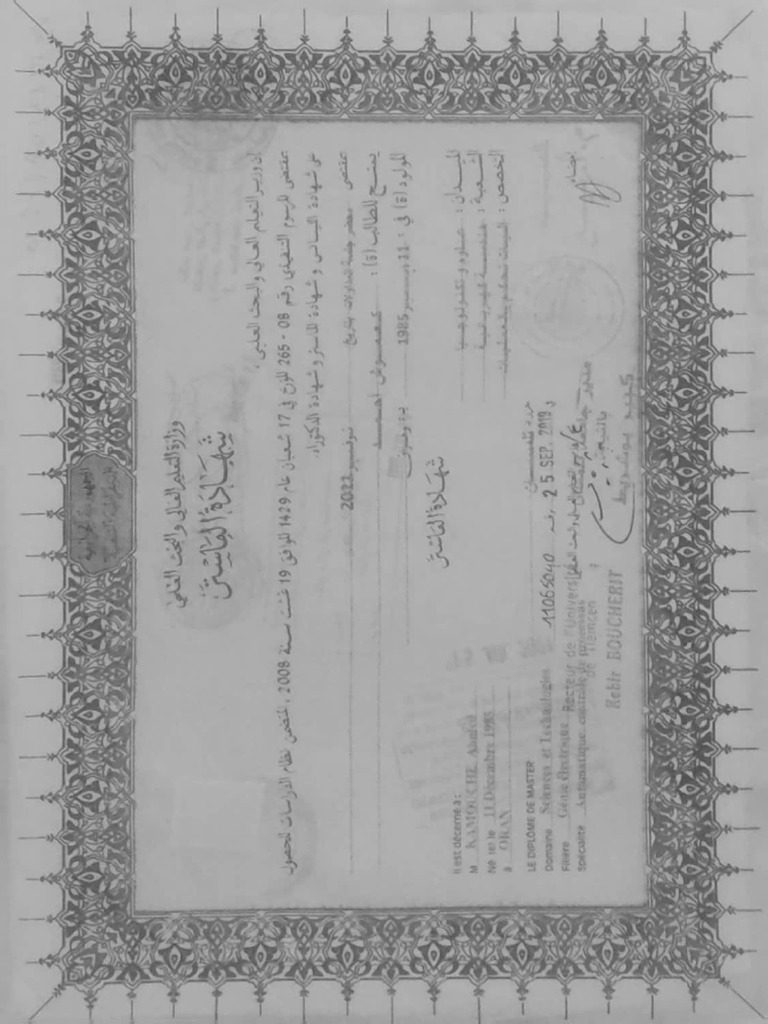 وزارة التعليم العالي والبحث العلمي
شهادة الماستر
إن وزير التعليم العالي والبحث العلمي،
بمقتضى المرسوم التنفيذي رقم 08 - 265 المؤرخ في 17 شعبان عام 1429 الموافق 19 غشت سنة 2008، المتضمن نظام الدراسات للحصول
على شهادة الليسانس وشهادة الماستر وشهادة الدكتوراه،
بمقتضى محضر جلسة المداولات بتاريخ نوفمبر
يمنح للطالب(ة) : كعموش احمد
المولود(ة) في : 11 ديسمبر 1985 بـ: وهران
شهادة الماستر
الميدان : علوم و تكنولوجيا
الشعبة : هندسة كهربائية
التخصص :
Il est décerné à :
M KAMOUCHE Ahmed
Né (e) le 11 Décembre 1985
à ORAN
LE DIPLOME DE MASTER
Domaine Sciences et Technologies
Filière Génie électrique
Spécialité Automatique
حرر بـ تلمسان في 25 SEP. 2019 رقم 11065040
Recteur de l'Université
de Tlemcen
Kebir BOUCHERIT
كبير بوشريط